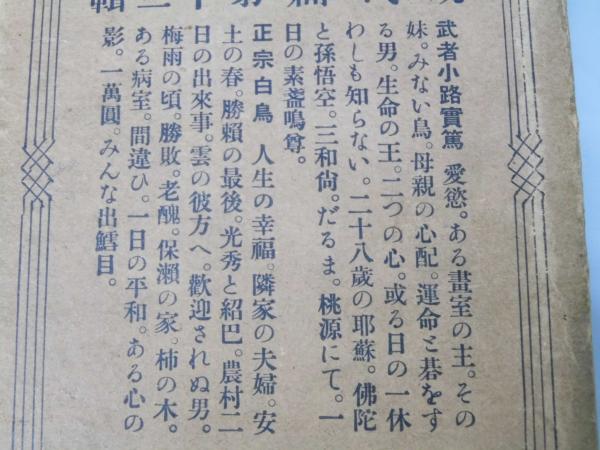 武者小路實篤 愛慾。ある畫室の主。その
妹。みない鳥。母親の心配。運命と碁をす
る男。生命の王。二つの心。或る日の一休
わしも知らない。二十八歲の耶蘇。佛陀
と孫悟空。三和尙。だるま。桃源にて。一
日の素盞嗚尊。
正宗白鳥 人生の幸福。隣家の夫婦。安
土の春。勝賴の最後。光秀と紹巴。農村二
日の出來事。雲の彼方へ。歡迎されぬ男。
梅雨の頃。勝敗。老醜。保瀨の家。柿の木。
ある病室。間違ひ。一日の平和。ある心の
影。一萬圓。みんな出鱈目。